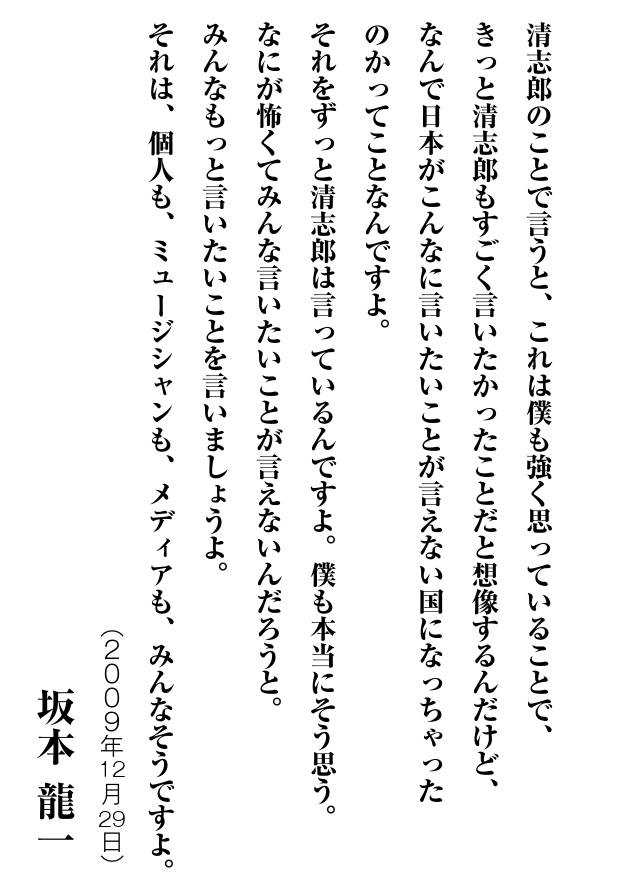 清志郎のことで言うと、これは僕も強く思っていることで、
きっと清志郎もすごく言いたかったことだと想像するんだけど、
なんで日本がこんなに言いたいことが言えない国になっちゃった
のかってことなんですよ。
それをずっと清志郎は言っているんですよ。僕も本当にそう思う。
なにが怖くてみんな言いたいことが言えないんだろうと。
みんなもっと言いたいことを言いましょうよ。
それは、個人も、ミュージシャンも、メディアも、みんなそうですよ。
（2009年12月29日）
坂本 龍一